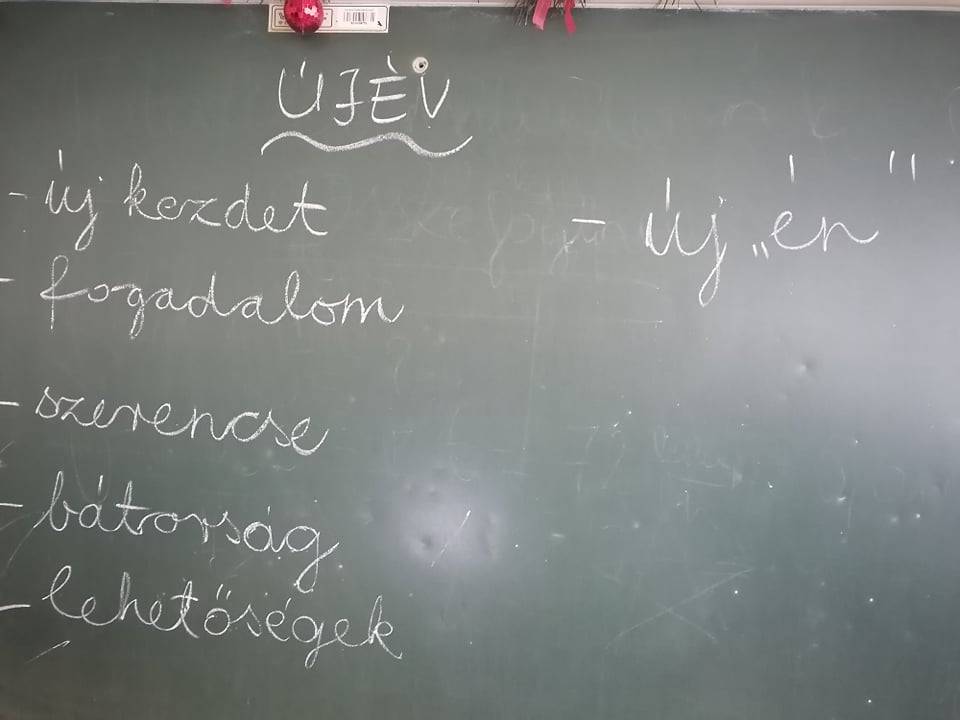 ÚJÉV
- új kezdet
- fogadalom
- szerencse
- bátorság
- lehetőségek
- új „én"